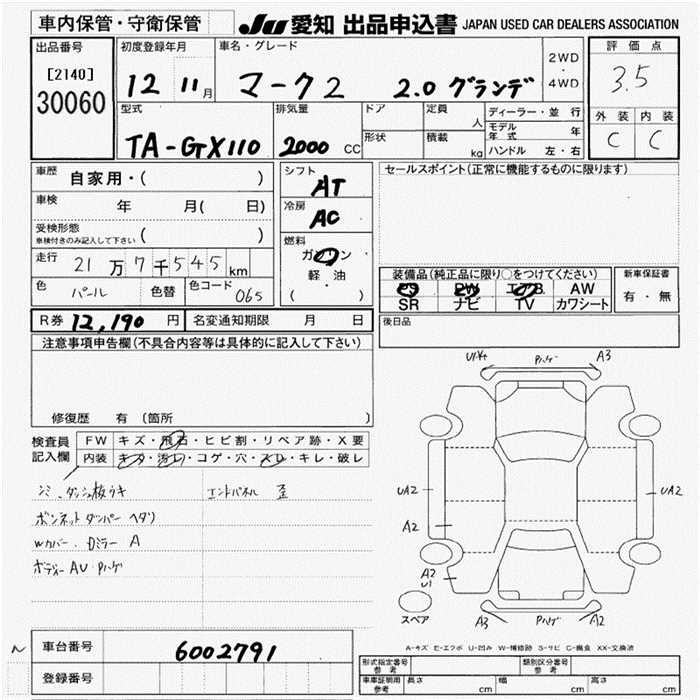 車内保管・守衛保管
JU 愛知 出品申込書 JAPAN USED CAR DEALERS ASSOCIATION
出品番号
[2140]
30060
初度登録年月
12 11月
車名・グレード
マーク2 2.0 グランデ
2WD
・
4WD
評価点
3.5
外装 内装
C C
型式
TA-GX110
排気量
2000 CC
ドア
形状
定員 人
積載 kg
ディーラー・並行
モデル年式 年
ハンドル 左・右
車歴
自家用・( )
車検 年 月( 日)
受検形態
車検付きのみ記入して下さい ( )
走行 21万7千545km
色 パール 色替 色コード 065
シフト
AT
冷房
AC
燃料
ガソリン
軽・油
( )
セールスポイント(正常に機能するものに限ります)
装備品(純正品に限り○をつけてください)
PS PW エアB AW
SR ナビ TV カワシート
新車保証書
有・無
R券 12,190 円 名変通知期限 月 日
後日品
注意事項申告欄(不具合内容等は具体的に記入して下さい)
修復歴 有 (箇所
検査員
記入欄
FW キズ・飛石・ヒビ割・リペア跡・X要
内装 キズ・汚レ・コゲ・穴・スレ・キレ・破レ
シミ ダッシュ板ウキ エンドパネル 歪
ボンネットダンパー ヘタリ
Wカバー. Dミラー A
ボディー AU・Pハゲ
Pハゲ A3
UA2 UA2
A2
A2
U1
スペア
A3 Pハゲ A2
A-キズ E-エクボ U-凹み W-補修跡 S-サビ C-腐食 XX-交換済
車台番号 6002791
登録番号
型式指定番号
参考
類別区分番号
参考
車車証明用
参考
長さ cm 幅 cm 高さ cm